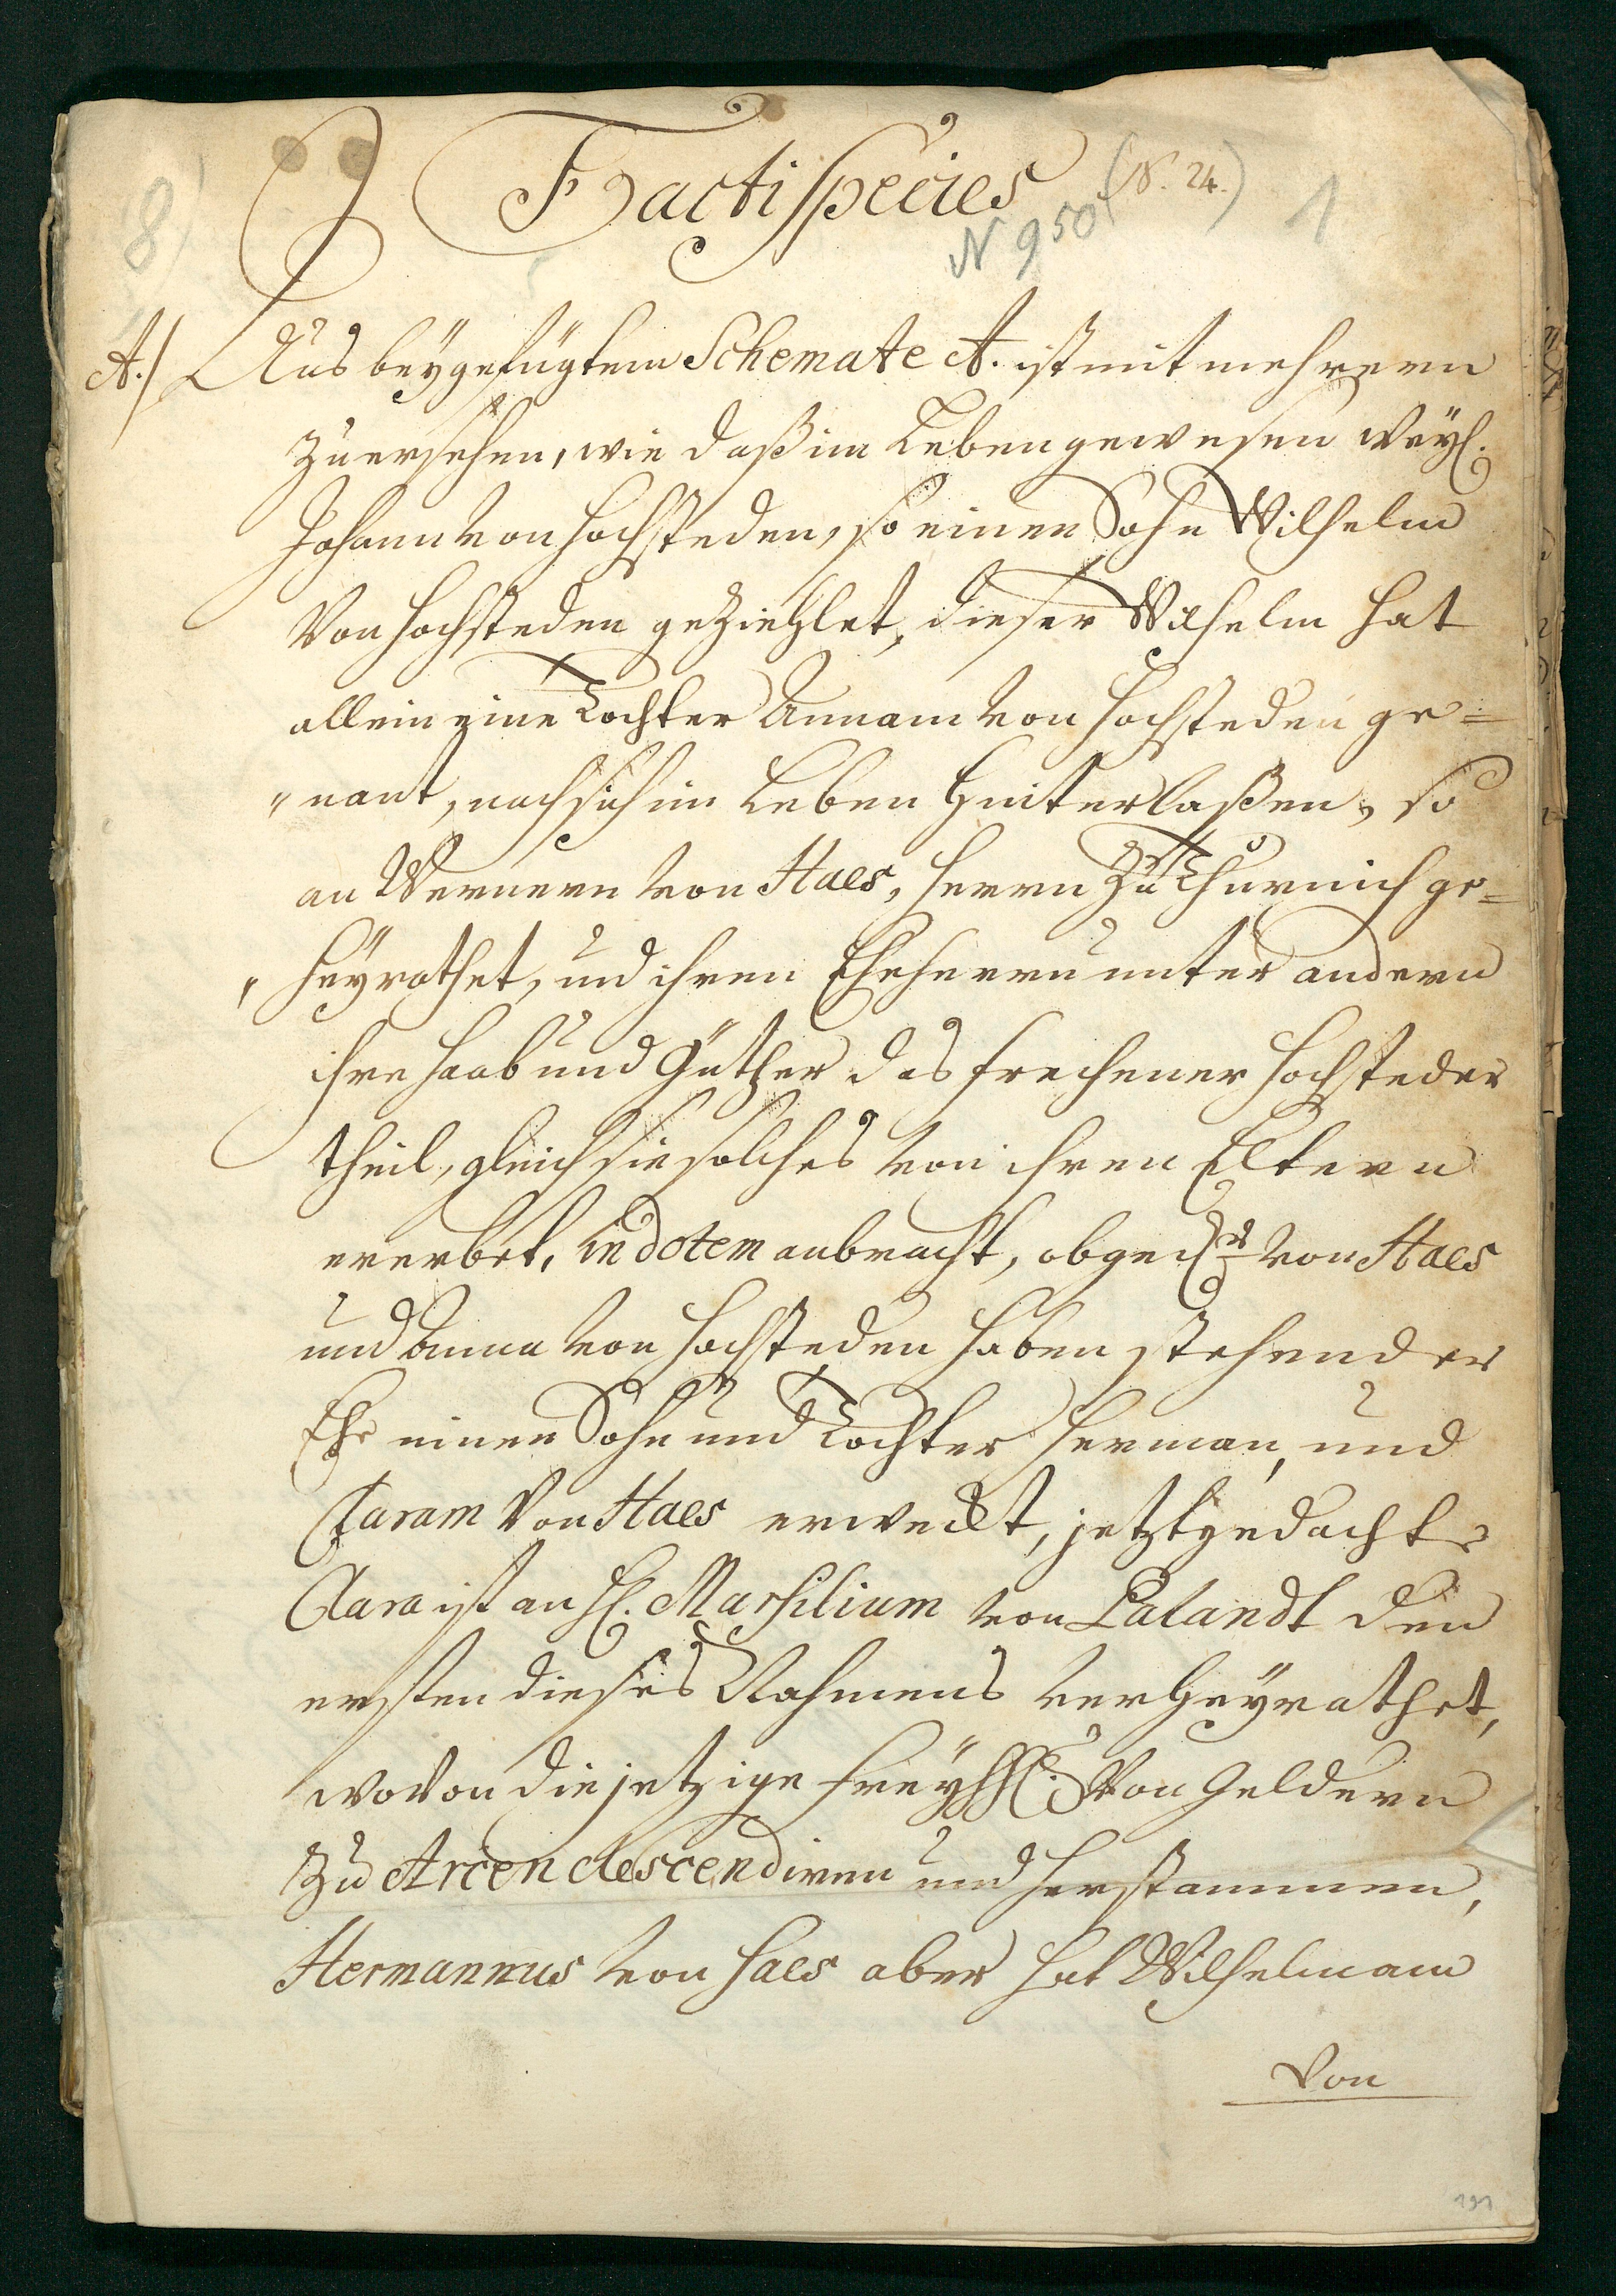 Facti Species
(N. 24.)
N 950
1
8)
A./ Aus beygefügtem Schemate A. ist mit mehrern
zu ersehen, wie daß im Leben gewesen weyl.
Johann von Hochsteden, so einen Sohn Wilhelm
von Hochsteden geziehlet, dieser Wilhelm hat
allein eine Tochter Annam von Hochsteden ge=
"nant, nach sich im Leben hinterlaßen, so
an Wernern von Haes, Herrn zu Thurnich ge=
"heyrathet, und ihren Eheherrn unter andern
ihre Haab und Güther das frechener Hochsteder
theil, gleich sie solches von ihren Eltern
ererbet, in dotem anbracht, obged.ter von Haes
und Anna von Hochsteden haben stehender
Ehe einen Sohn und Tochter Herman, und
Claram von Haes erweckt, jetztgedachte
Clara ist an H. Marsilium von Palandt den
ersten dieses Nahmens verheyrathet,
wovon die jetzige Freyhh. von Geldern
zu Arcen descendiren und herstammen,
Hermannus von Haes aber hat Wilhelmam
von
191